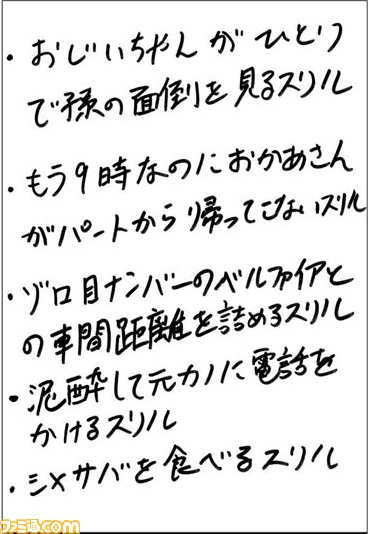 ・おじいちゃんがひとり
で孫の面倒を見るスリル
・もう9時なのにおかあさん
がパートから帰ってこないスリル
・ゾロ目ナンバーのベルファイアと
の車間距離を詰めるスリル
・泥酔して元カノに電話を
かけるスリル
・シメサバを食べるスリル
ファミ通.com